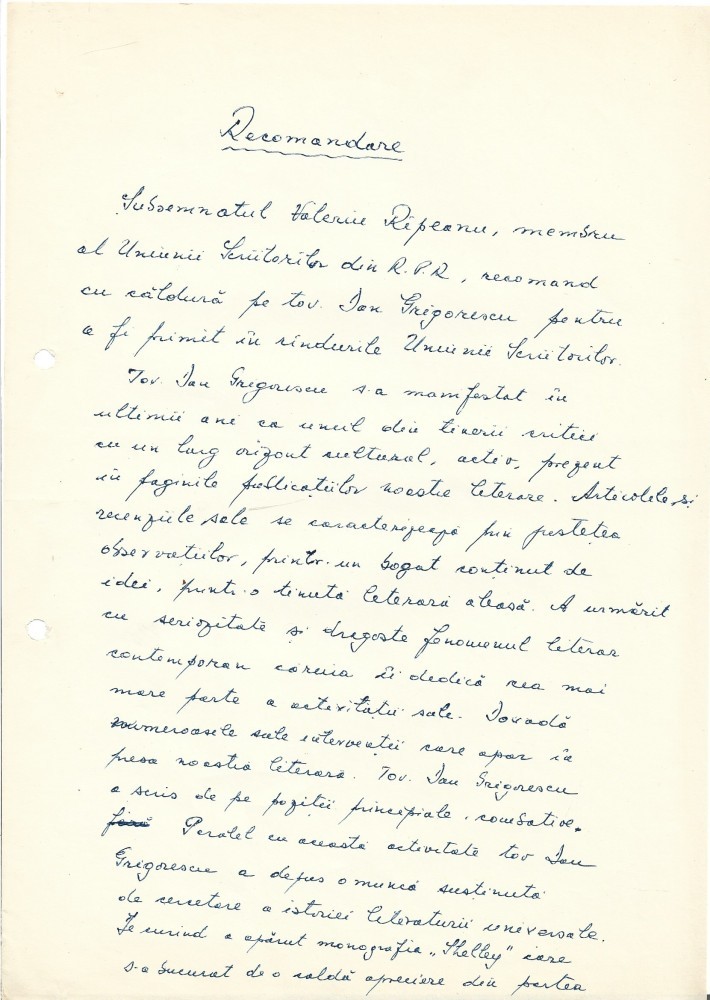 Recomandare
Subsemnatul Valeriu Rîpeanu, membru
al Uniunii Scriitorilor din R.P.R, recomand
cu căldură pe tov. Dan Grigorescu pentru
a fi primit în rîndurile Uniunii Scriitorilor.
Tov. Dan Grigorescu s-a manifestat în
ultimii ani ca unul din tinerii critici
cu un larg orizont cultural, activ, prezent
în paginile publicațiilor noastre literare. Articolele și
recenziile sale se caracterizează prin justețea
observațiilor, printr-un bogat conținut de
idei, printr-o ținută literară aleasă. A urmărit
cu seriozitate și dragoste fenomenul literar
contemporan căruia îi dedică cea mai
mare parte a activității sale. Dovadă
numeroasele sale intervenții care apar în
presa noastră literară. Tov. Dan Grigorescu
a scris de pe poziții principiale, combative.
Paralel cu această activitate tov Dan
Grigorescu a depus o muncă susținută
de cercetare a istoriei literaturii universale.
De curînd a apărut monografia „Shelley" care
s-a bucurat de o caldă apreciere din partea